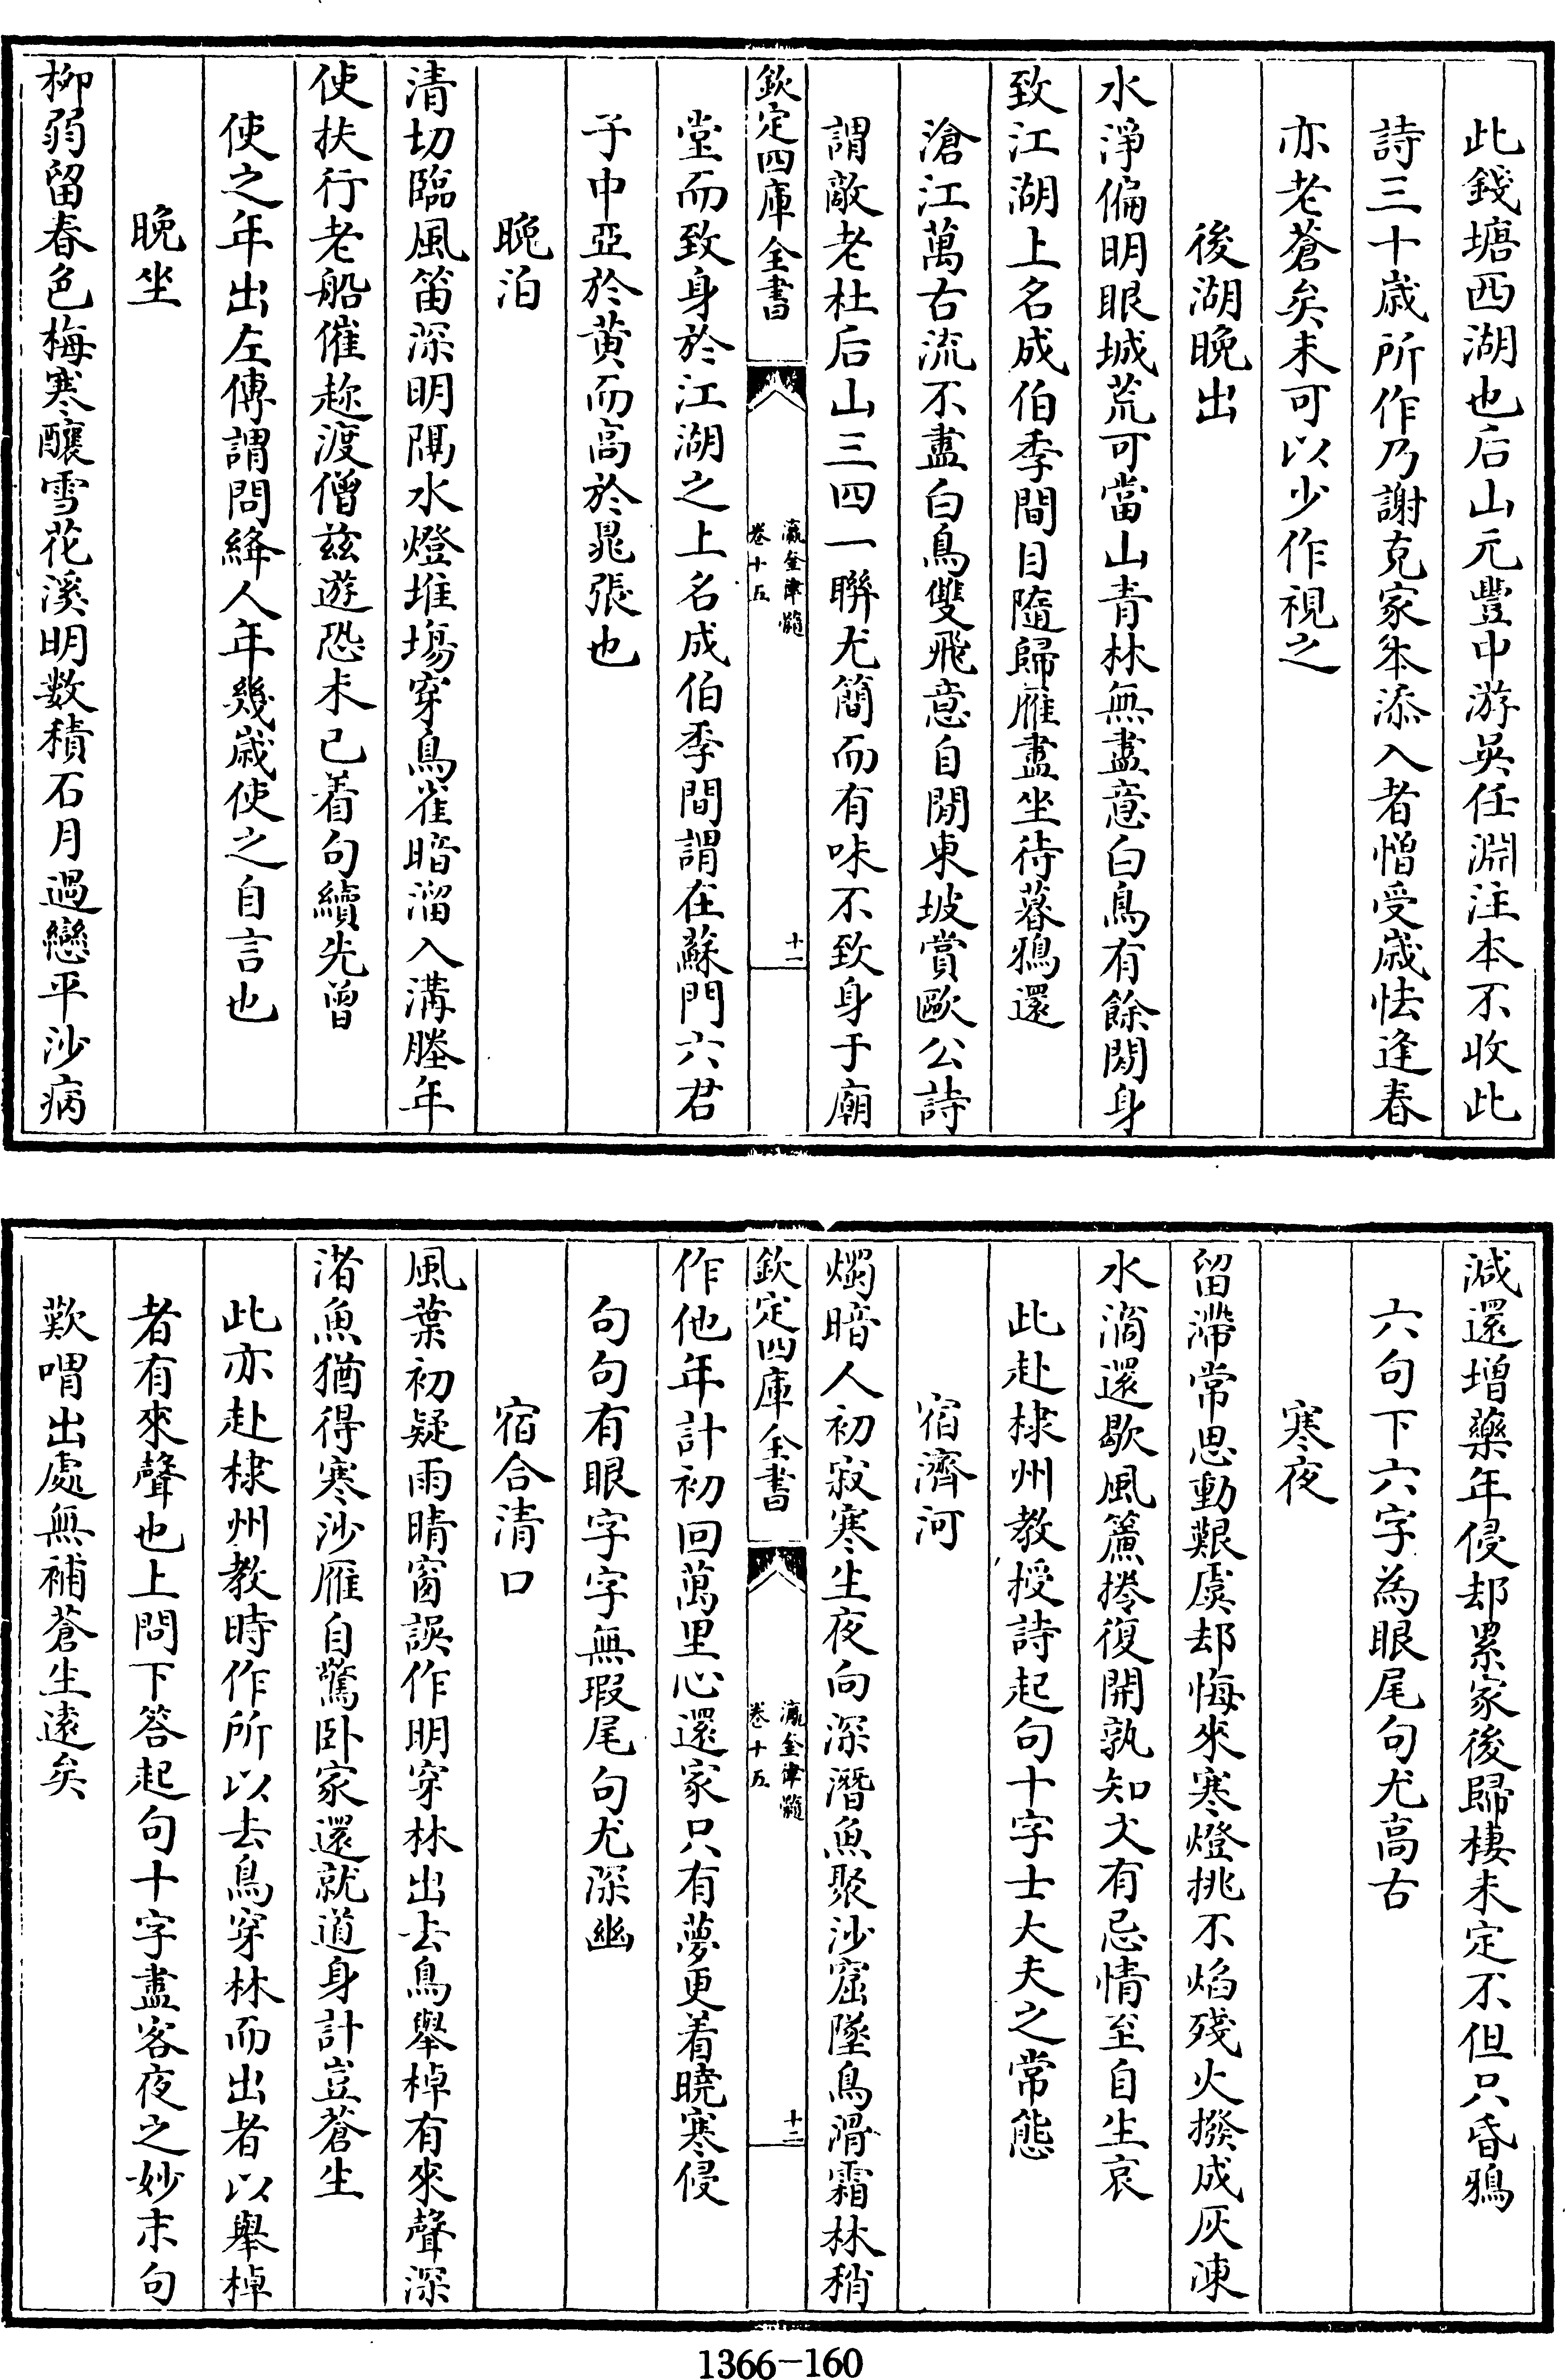 此錢塘西湖也后山元豐中游吳任淵注本不收此
詩三十歲所作乃謝克家本添入者憎受歲怯逢春
亦老蒼矣未可以少作視之
後湖晚出
水淨偏明眼城荒可當山青林無盡意白鳥有餘閑身
致江湖上名成伯季間目隨歸雁盡坐待暮鴉還
滄江萬古流不盡白鳥雙飛意自閒東坡賞歐公詩
謂敵老杜后山三四一聯尤簡而有味不致身于廟
欽定四庫全書
瀛奎律髓
卷十五
十一
堂而致身於江湖之上名成伯季間謂在蘇門六君
子中亞於黄而高於晁張也
晚泊
清切臨風笛深明隅水燈堆塲穿鳥雀暗溜入溝塍年
使扶行老船催趂渡僧兹遊恐未已着句續先曾
使之年出左傳謂問絳人年幾歲使之自言也
晚坐
柳弱留春色梅寒釀雪花溪明数積石月過戀平沙病
減還增藥年侵却累家後歸棲未定不但只昏鴉
六句下六字為眼尾句尤高古
寒夜
留滯常思動艱虞却悔來寒燈挑不焰殘火撥成灰凍
水滴還歇風簾捲復開孰知文有忌情至自生哀
此赴棣州教授詩起句十字士大夫之常態
宿濟河
燭暗人初寂寒生夜向深潛魚聚沙窟墜鳥滑霜林稍
欽定四庫全書
瀛奎律髓
卷十五
十二
作他年計初回萬里心還家只有夢更着曉寒侵
句句有眼字字無瑕尾句尤深幽
宿合清口
風葉初疑雨晴窗誤作明穿林出去鳥舉棹有來聲深
渚魚猶得寒沙雁自驚卧家還就道身計豈蒼生
此亦赴棣州教時作所以去鳥穿林而出者以舉棹
者有來聲也上問下答起句十字盡客夜之妙末句
歎喟出處無補蒼生遠矣
1366-160